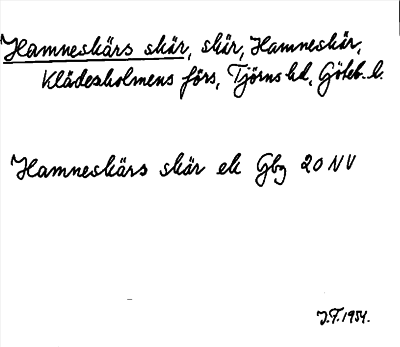 Hamneskärs skär, skär, Hamneskär,
Klädesholmens förs, Tjörns hd, Göteb. l.
Hamneskärs skär ek Gbg 20 NV
J.F. 1954.